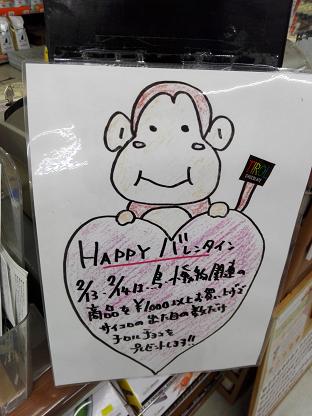 TIROL
CHOCOLATE
HAPPY バレンタイン
2/13. 2/14は、鳥・小動物関連の
商品を¥1,000以上お買い上げで
サイコロの出た目の数だけ
チロルチョコを
プレゼントします!!